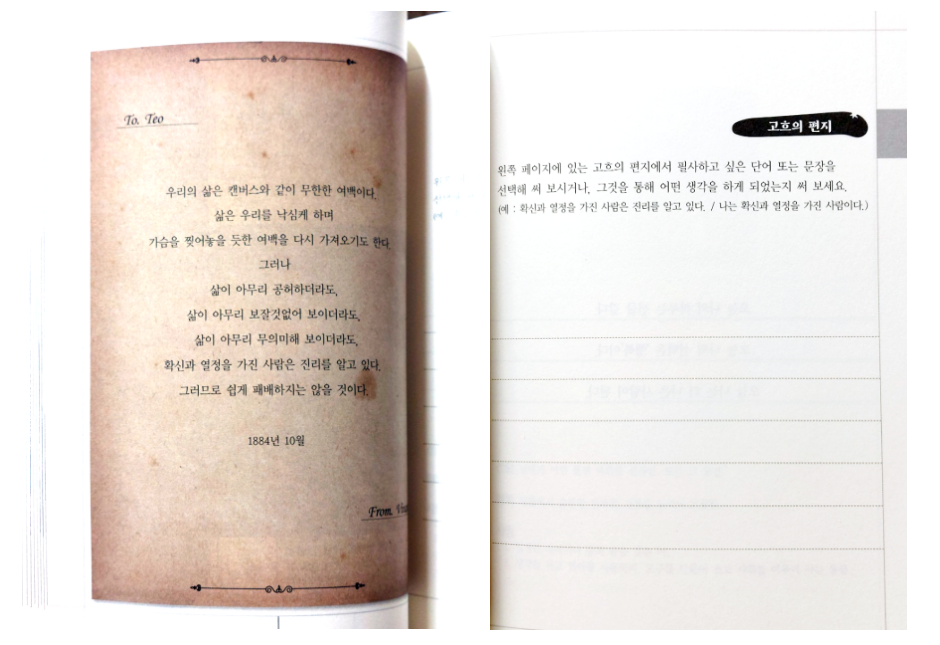 To. Teo
우리의 삶은 캔버스와 같이 무한한 여백이다.
삶은 우리를 낙심케 하며
가슴을 찢어놓을 듯한 여백을 다시 가져오기도 한다.
그러나
삶이 아무리 공허하더라도,
삶이 아무리 보잘것없어 보이더라도,
삶이 아무리 무의미해 보이더라도,
확신과 열정을 가진 사람은 진리를 알고 있다.
그러므로 쉽게 패배하지는 않을 것이다.
1884년 10월
From.
고흐의 편지
왼쪽 페이지에 있는 고흐의 편지에서 필사하고 싶은 단어 또는 문장을
선택해 써 보시거나, 그것을 통해 어떤 생각을 하게 되었는지 써 보세요.
(예 : 확신과 열정을 가진 사람은 진리를 알고 있다. / 나는 확신과 열정을 가진 사람이다.)